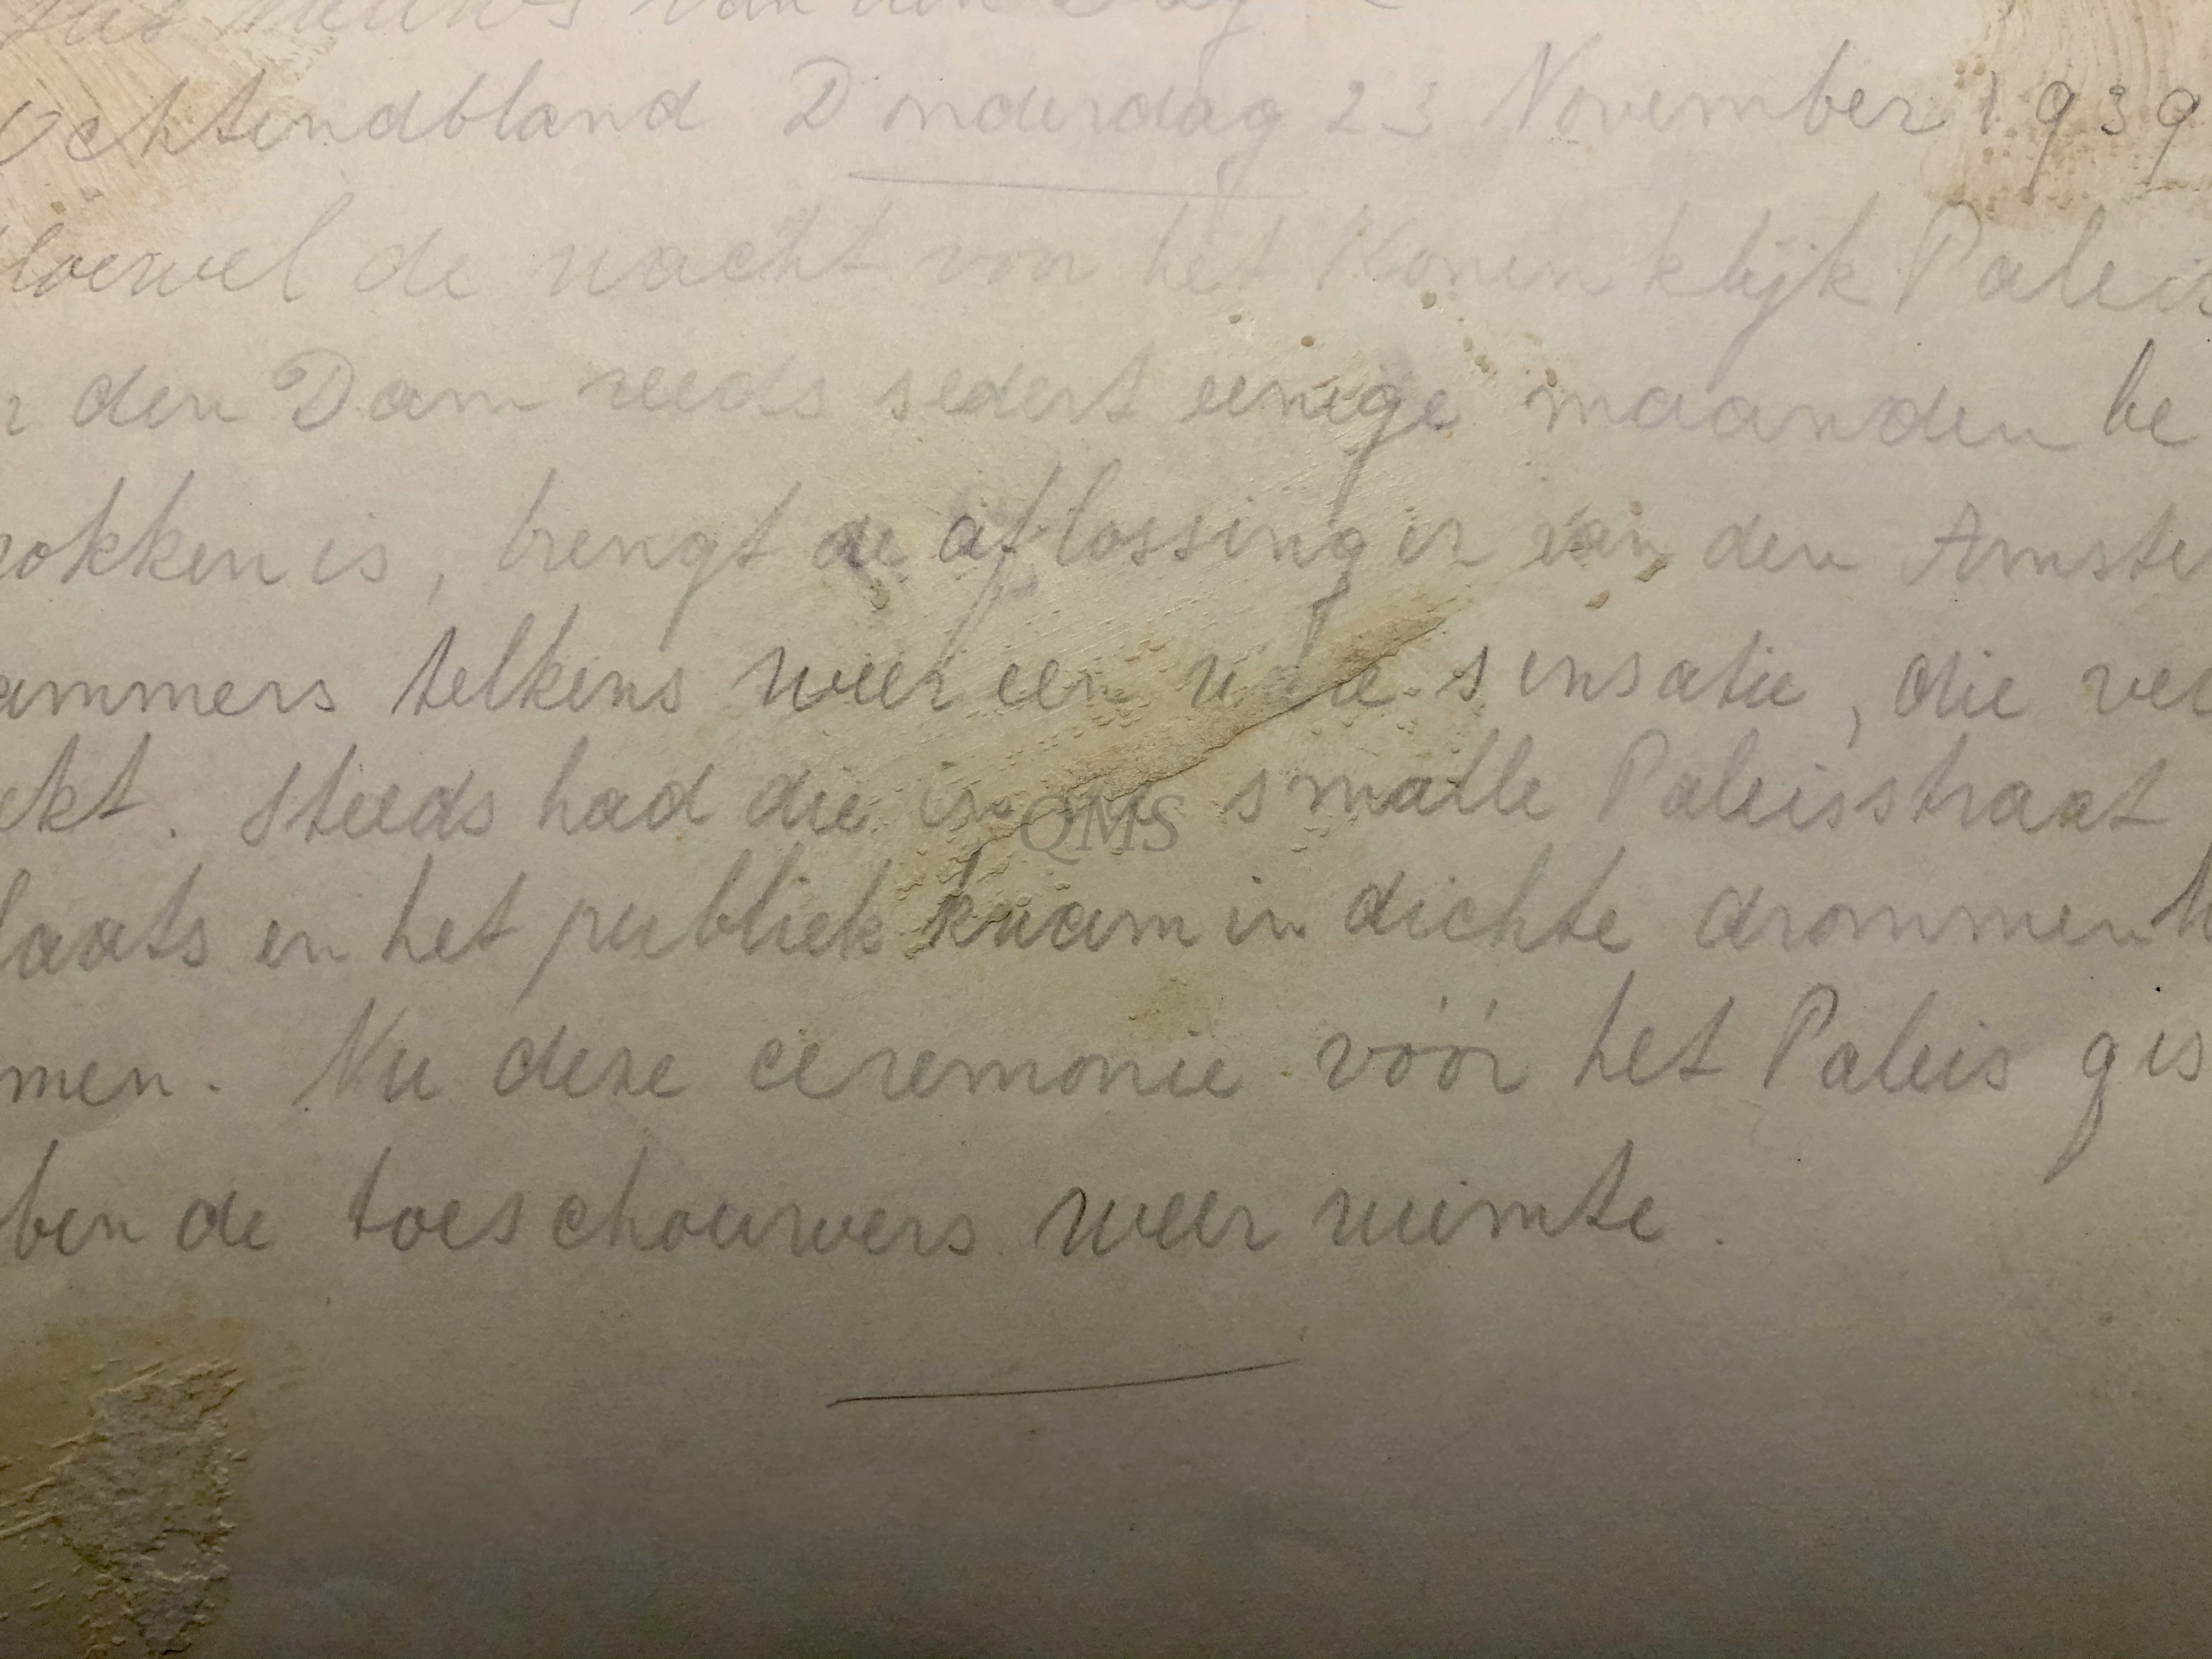 nieuws van den Dag
Ochtendbland Donderdag 23 November 1939
Hoewel de wacht voor het Koninklijk Paleis
den Dam reeds sedert eenige maanden be
rokken is, brengt de aflossing er van den Amste
ammers telkens weer een sensatie, die vec
ekt. Steeds had die in smalle Paleisstraat
laats en het publiek kwam in dichte drommen
men. Nu deze ceremonie vóór het Paleis ges
ben de toeschouwers weer ruimte.
QMS